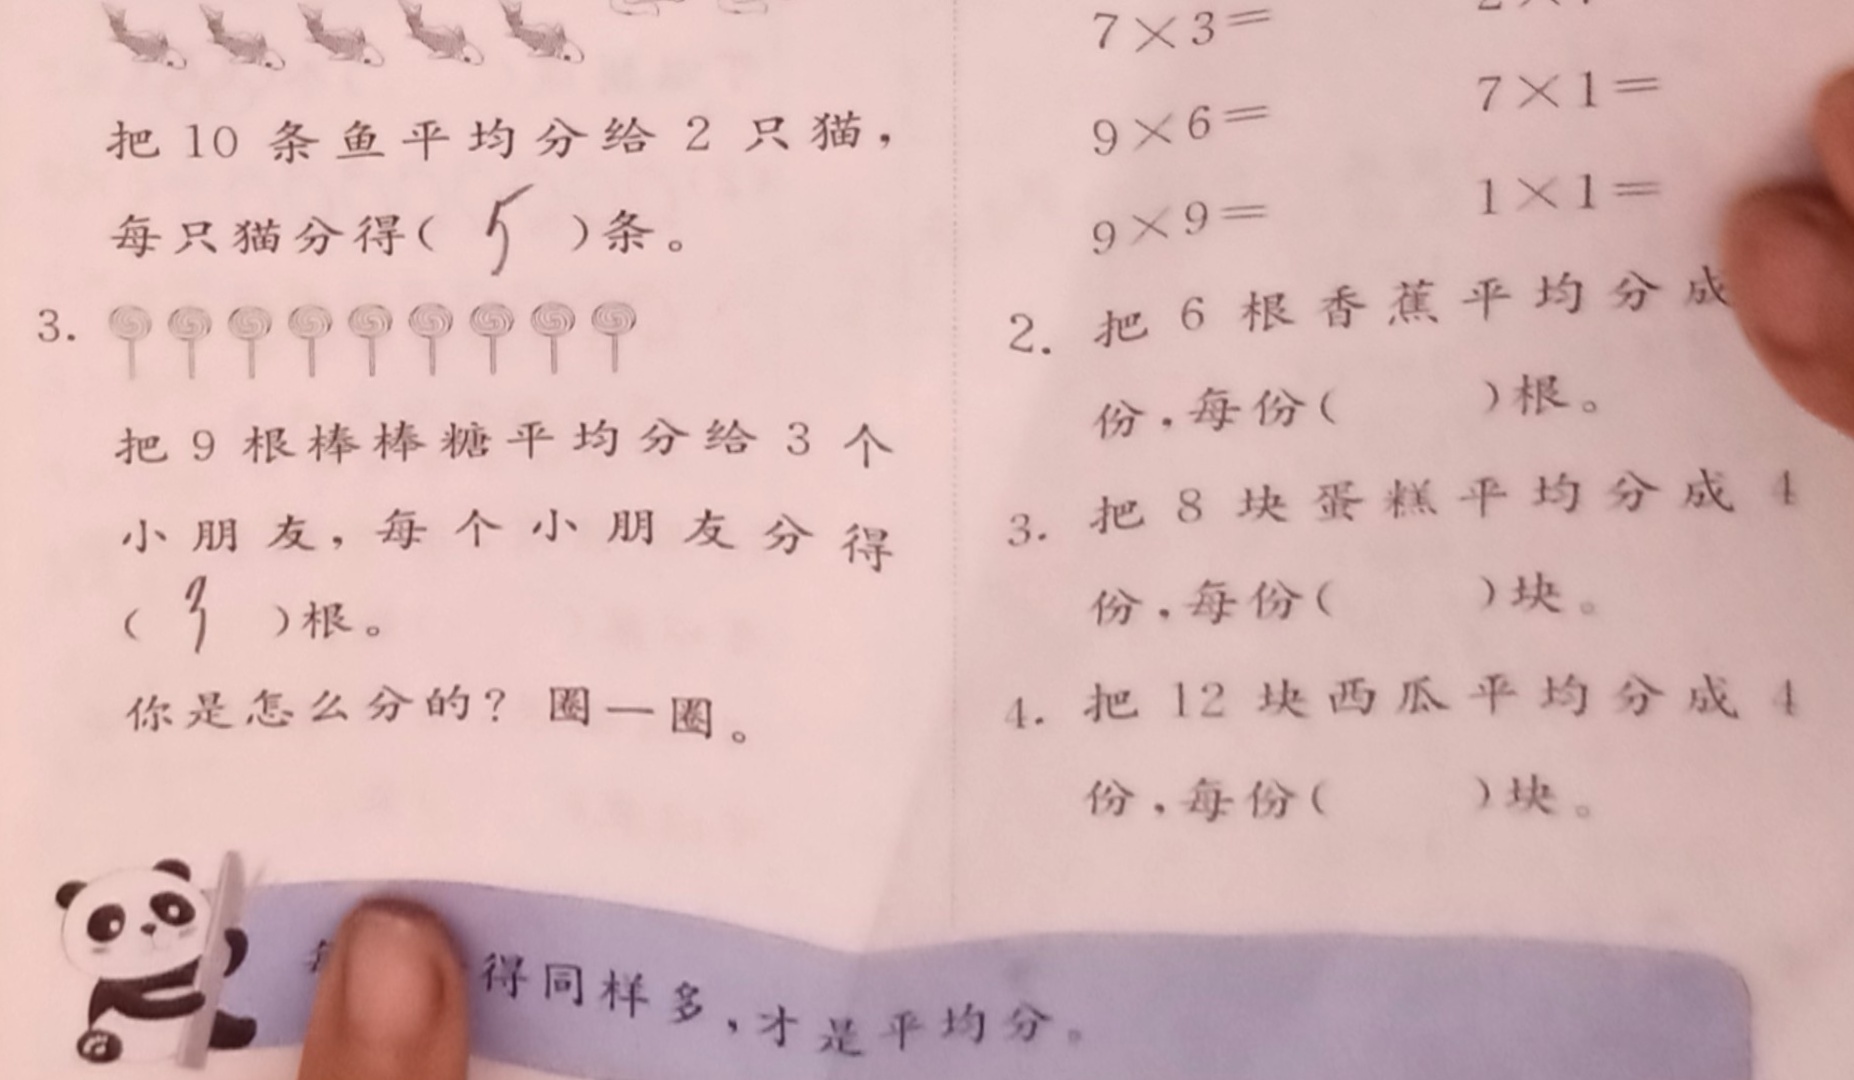 把 10 条鱼平均分给 2 只猫，
每只猫分得( 5 )条。
3.
把 9 根棒棒糖平均分给 3 个
小朋友，每个小朋友分得
( 3 )根。
你是怎么分的？圈一圈。
7×3=
9×6= 7×1=
9×9= 1×1=
2. 把 6 根香蕉平均分成
份，每份( )根。
3. 把 8 块蛋糕平均分成 4
份，每份( )块。
4. 把 12 块西瓜平均分成 4
份，每份( )块。
得同样多，才是平均分。